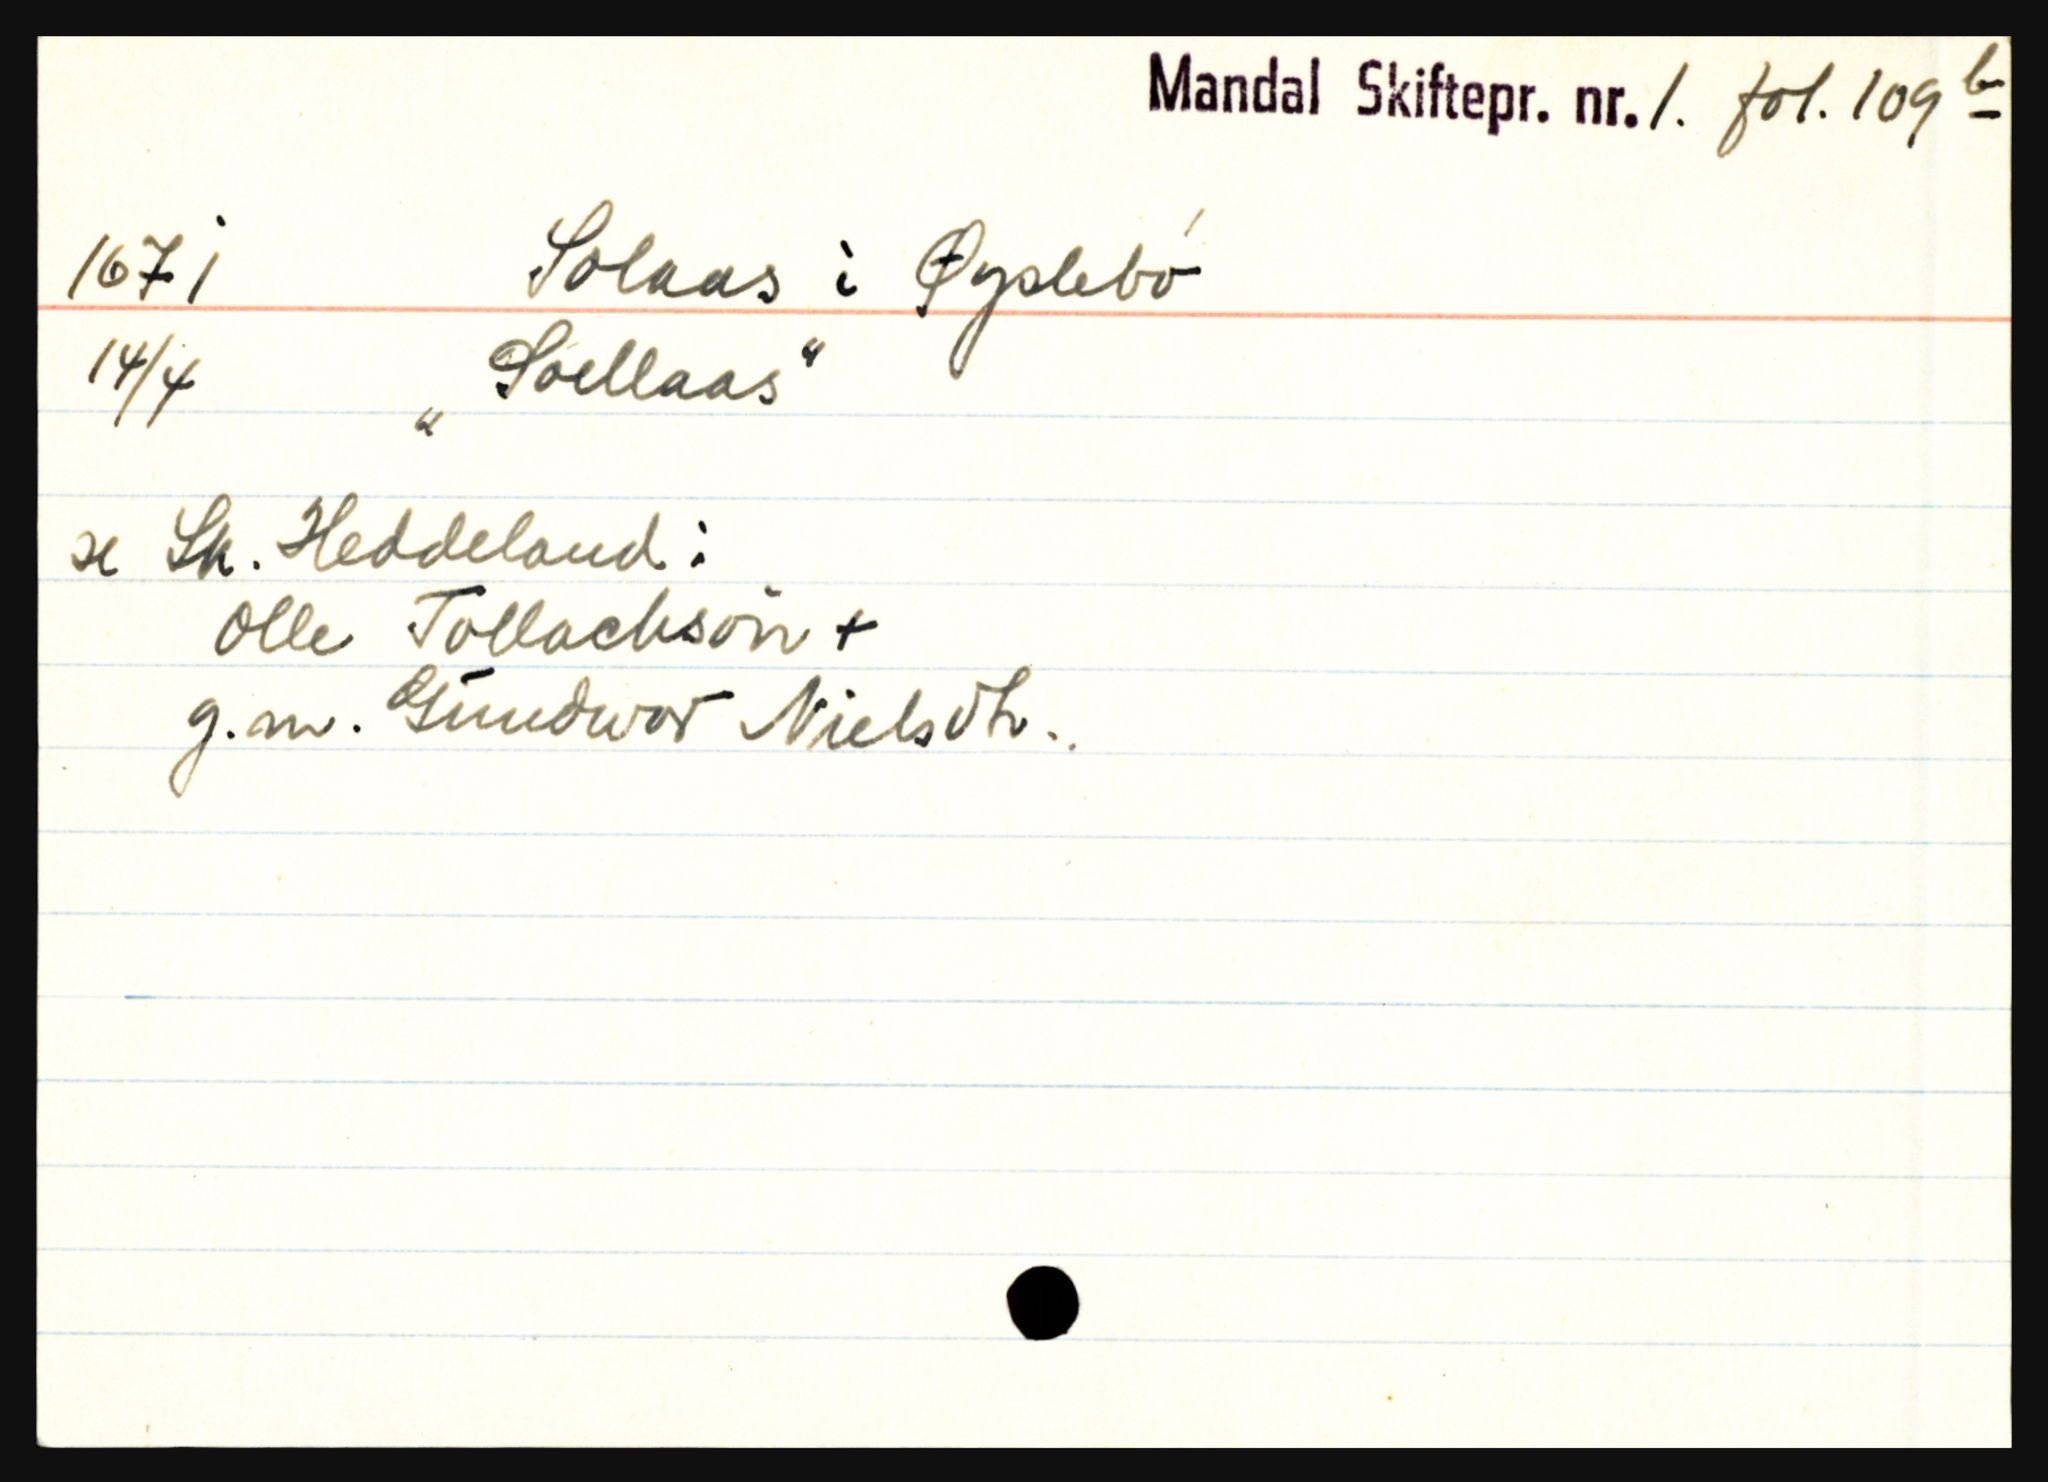 Mandal Skiftepr. nr. 1. fol. 109 b
1671 Solaas i Øyslebö
14/4 „Soellaas“
se Sk. Heddeland:
Olle Tollachsön +
g.m. Gundwor Nielsdtr.